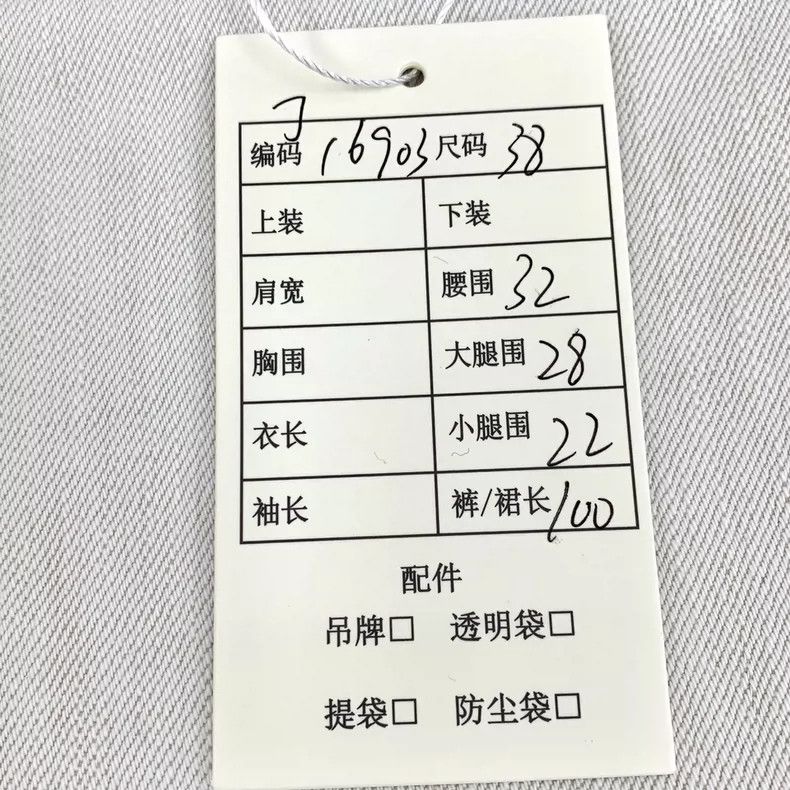 J
编码 16903 尺码 38
上装 下装
肩宽 腰围 32
胸围 大腿围 28
衣长 小腿围 22
袖长 裤/裙长 100
配件
吊牌□ 透明袋□
提袋□ 防尘袋□